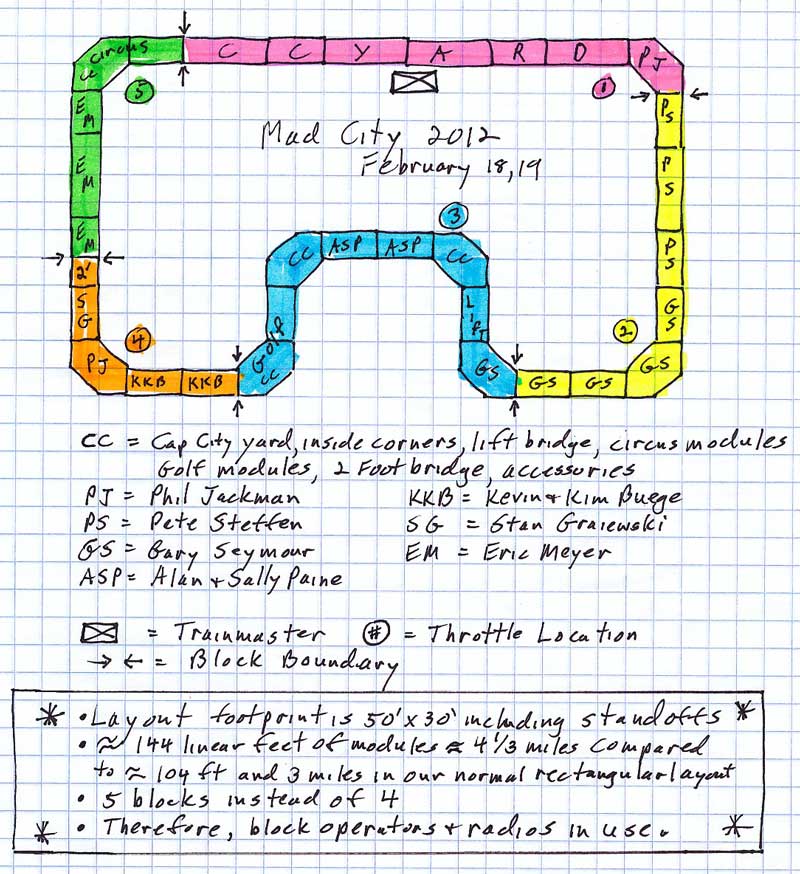 CC Circus C C Y A R D PJ
5 1
EM PS
Mad City 2012
February 18,19
EM PS
3
EM CC ASP ASP CC PS
2'
SG Golf Lift GS
4 2
PJ KKB KKB CC GS GS GS GS
CC = Cap City yard, inside corners, lift bridge, circus modules
Golf modules, 2 Foot bridge, accessories
PJ = Phil Jackman KKB = Kevin + Kim Buege
PS = Pete Steffen SG = Stan Graiewski
GS = Gary Seymour EM = Eric Meyer
ASP = Alan + Sally Paine
= Trainmaster # = Throttle Location
→ ← = Block Boundary
* • Layout footprint is 50' x 30' including standoffs *
• ≈ 144 linear feet of modules ≈ 4 1/3 miles compared
to ≈ 104 ft and 3 miles in our normal rectangular layout
• 5 blocks instead of 4
* • Therefore, block operators + radios in use. *